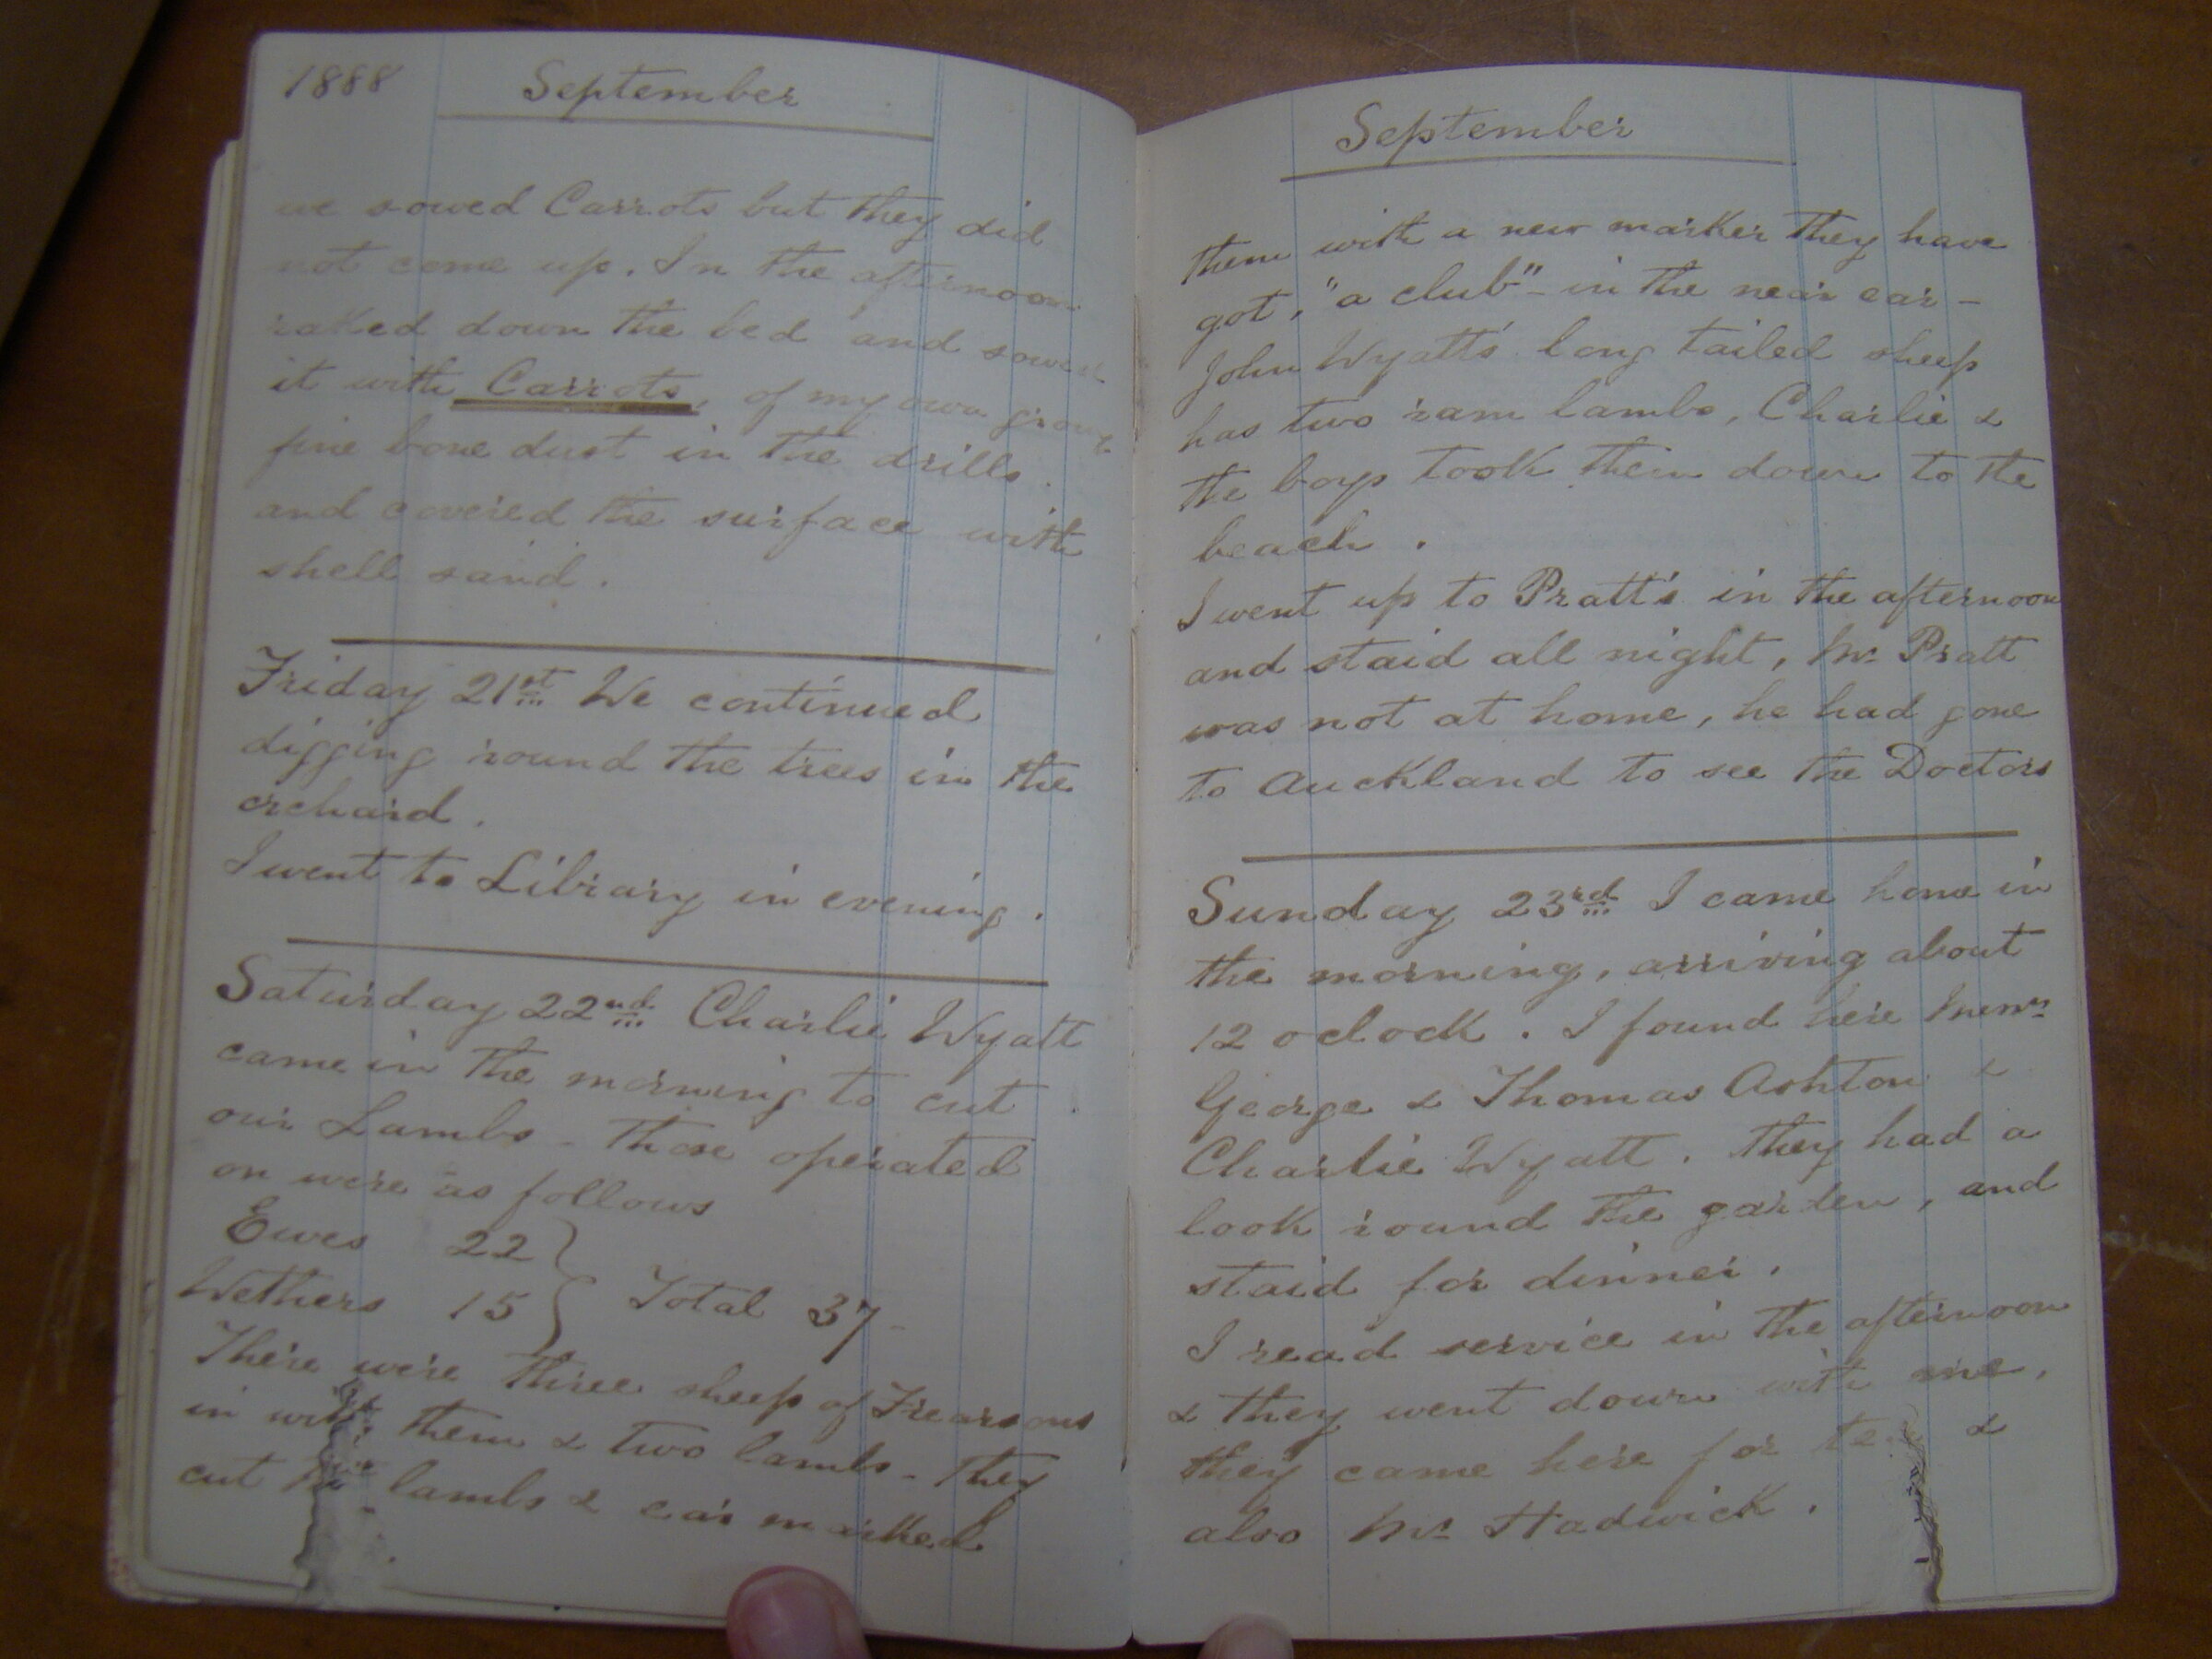 1888 September
we sowed Carrots but they did
not come up. In the afternoon
raked down the bed and sowed
it with Carrots, of my own growth
fine bone dust in the drills.
and covered the surface with
shell sand.
Friday 21st We continued
digging round the trees in the
orchard.
I went to Library in evening.
Saturday 22nd Charlie Wyatt
came in the morning to cut
our Lambs - Those operated
on were as follows
Ewes 22
Wethers 15 } Total 37-
There were three sheep of Frearsons
in with them & two lambs - They
cut the lambs & ear marked
September
them with a new marker they have
got, "a club" - in the near ear -
John Wyatt's long tailed sheep
has two ram lambs, Charlie &
the boys took them down to the
beach.
I went up to Pratt's in the afternoon
and staid all night, Mr Pratt
was not at home, he had gone
to Auckland to see the Doctors
Sunday 23rd I came home in
the morning, arriving about
12 oclock. I found here
George & Thomas Ashton &
Charlie Wyatt. They had a
look round the garden, and
staid for dinner.
I read service in the afternoon
& they went down with me,
they came here for tea &
also Mr Hadwick.